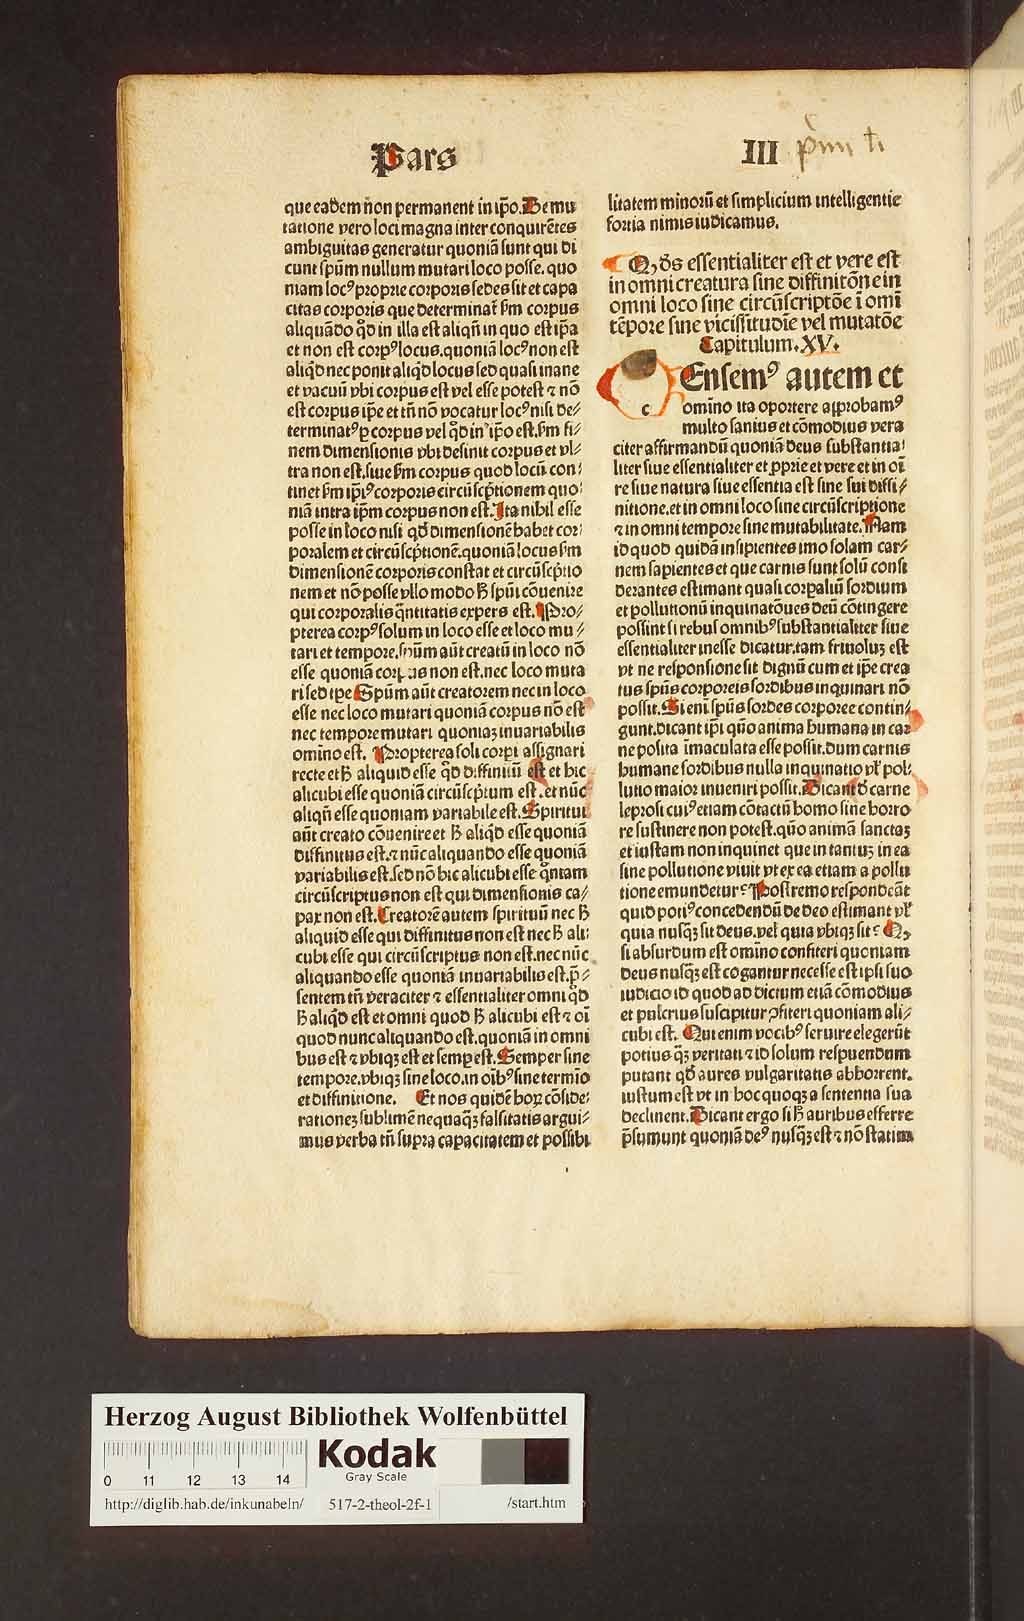 Pars
III pͥmi ti
que eadem nõn permanent in ip̃o. De mu
tatione vero loci magna inter conquirẽtes
ambiguitas generatur quoniã sunt qui di
cunt spũm nullum mutari loco posse. quo
niam locꝰ proprie corporis sedes sit et capa
citas corporis que determinat᷑ ẜm corpus
aliquãdo qd̃ in illa est aliqñ in quo est ip̃a
et non est corpꝰ locus. quoniã locꝰ non est
aliqd̃ nec ponit aliqd̃ locus sed quasi inane
et vacuũ vbi corpus est vel esse potest ⁊ nõ
est corpus ip̃e et tñ nõ vocatur locꝰ nisi de⸗
terminatꝰ ꝑ corpus vel qd̃ in ip̃o est. ẜm fi⸗
nem dimensionis vbi desinit corpus et vl⸗
tra non est. siue ẜm corpus quod locũ con⸗
tinet ẜm ip̃iꝰ corporis circũscp̃tionem quo⸗
niã intra ip̃m corpus non est. Ita nihil esse
posse in loco nisi qd̃ dimensionẽ habet cor⸗
poralem et circũscp̃tionẽ. quoniã locus ẜm
dimensionẽ corporis constat et circũscp̃tio
nem et nõ posse vllo modo ħ spũi cõuenire
qui corporalis q̃ntitatis expers est. Pro⸗
pterea corpꝰ solum in loco esse et loco mu⸗
tari et tempore. spũm aũt creatũ in loco nõ
esse quoniã corpus non est. nec loco muta
ri sed tp̃e Spũm aũt creatorem nec in loco
esse nec loco mutari quoniã corpus nõ est
nec tempore mutari quoniaꝫ inuariabilis
omĩno est. Propterea soli corpi assignari
recte et ħ aliquid esse qd̃ diffinitũ est et hic
alicubi esse quoniã circũscp̃tum est. et nũc
aliqñ esse quoniam variabile est. Spiritui
aũt creato cõuenire et ħ aliqd̃ esse quoniã
diffinitus est. ⁊ nũc aliquando esse quoniã
variabilis est. sed nõ hic alicubi esse q̃ntam
circũscriptus non est qui dimensionis ca⸗
pax non est. Creatorẽ autem spirituũ nec ħ
aliquid esse qui diffinitus non est nec ħ ali⸗
cubi esse qui circũscriptus non est. nec nũc
aliquando esse quoniã inuariabilis est. p̃⸗
sentem tñ veraciter ⁊ essentialiter omni qd̃
ħ aliqd̃ est et omni quod ħ alicubi est ⁊ oĩ
quod nunc aliquando est. quoniã in omni
bus est ⁊ vbiqꝫ est et semꝑ est. Semper sine
tempore. vbiqꝫ sine loco. in oĩbꝰ sine termĩo
et diffinitione. Et nos quidẽ hoꝝ cõside⸗
rationeꝫ sublimẽ nequaqꝫ falsitatis argui⸗
mus verba tñ supra capacitatem et possibi
litatem minorũ et simplicium intelligentie
fortia nimis iudicamus.
Q, ds̃ essentialiter est et vere est
in omni creatura sine diffinitõne in
omni loco sine circũscriptõe ĩ omĩ
tẽpore sine vicissitudĩe vel mutatõe
Capitulum. XV.
c Ensemꝰ autem et
omĩno ita oportere approbamꝰ
multo sanius et cõmodius vera
citer affirmandũ quoniã deus substantia⸗
liter siue essentialiter et ꝓprie et vere et in oĩ
re siue natura siue essentia est sine sui diffi⸗
nitione. et in omni loco sine circũscriptione
⁊ in omni tempore sine mutabilitate. Nam
id quod quidã insipientes imo solam car⸗
nem sapientes et que carnis sunt solũ consi
derantes estimant quasi corpaliũ sordium
et pollutionũ inquinatões deũ cõtingere
possint si rebus omnibꝰ substantialiter siue
essentialiter inesse dicatur. tam friuolũ est
vt ne responsione sit dignũ cum et ip̃e crea
tus spũs corporeis sordibus inquinari nõ
possit. Si em̃ spũs sordes corporee contin⸗
gunt. dicant ip̃i quõ anima humana in car
ne posita ĩmaculata esse possit. dum carnis
humane sordibus nulla inquinatio vł pol⸗
lutio maior inueniri possit. Dicant d̃ carne
leprosi cuiꝰ etiam cõtactũ homo sine horro
re sustinere non potest. quõ animã sanctaꝫ
et iustam non inquinet que in tantuꝫ in ea
sine pollutione viuit vt ex ea etiam a pollu
tione emundetur? Postremo respondeãt
quid potiꝰ concedendũ de deo estimant vł
quia nusqꝫ sit deus. vel quia vbiqꝫ sit? Q,
si absurdum est omĩno confiteri quoniam
deus nusqꝫ est cogantur necesse est ipsi suo
iudicio id quod ad dictum etiã cõmodius
et pulcrius suscipitur ꝯfiteri quoniam ali⸗
cubi est. Qui enim vocibꝰ seruire elegerũt
potius qꝫ veritati ⁊ id solum respuendum
putant qd̃ aures vulgaritatis abhorrent.
iustum est vt in hoc quoqꝫ a sententia sua
declinent. Dicant ergo si ħ auribus efferre
p̃sumunt quoniã deꝰ nusqꝫ est ⁊ nõ statim
Herzog August Bibliothek Wolfenbüttel
0 11 12 13 14
Kodak
Gray Scale
http://diglib.hab.de/inkunabeln/ 517-2-theol-2f-1 /start.htm